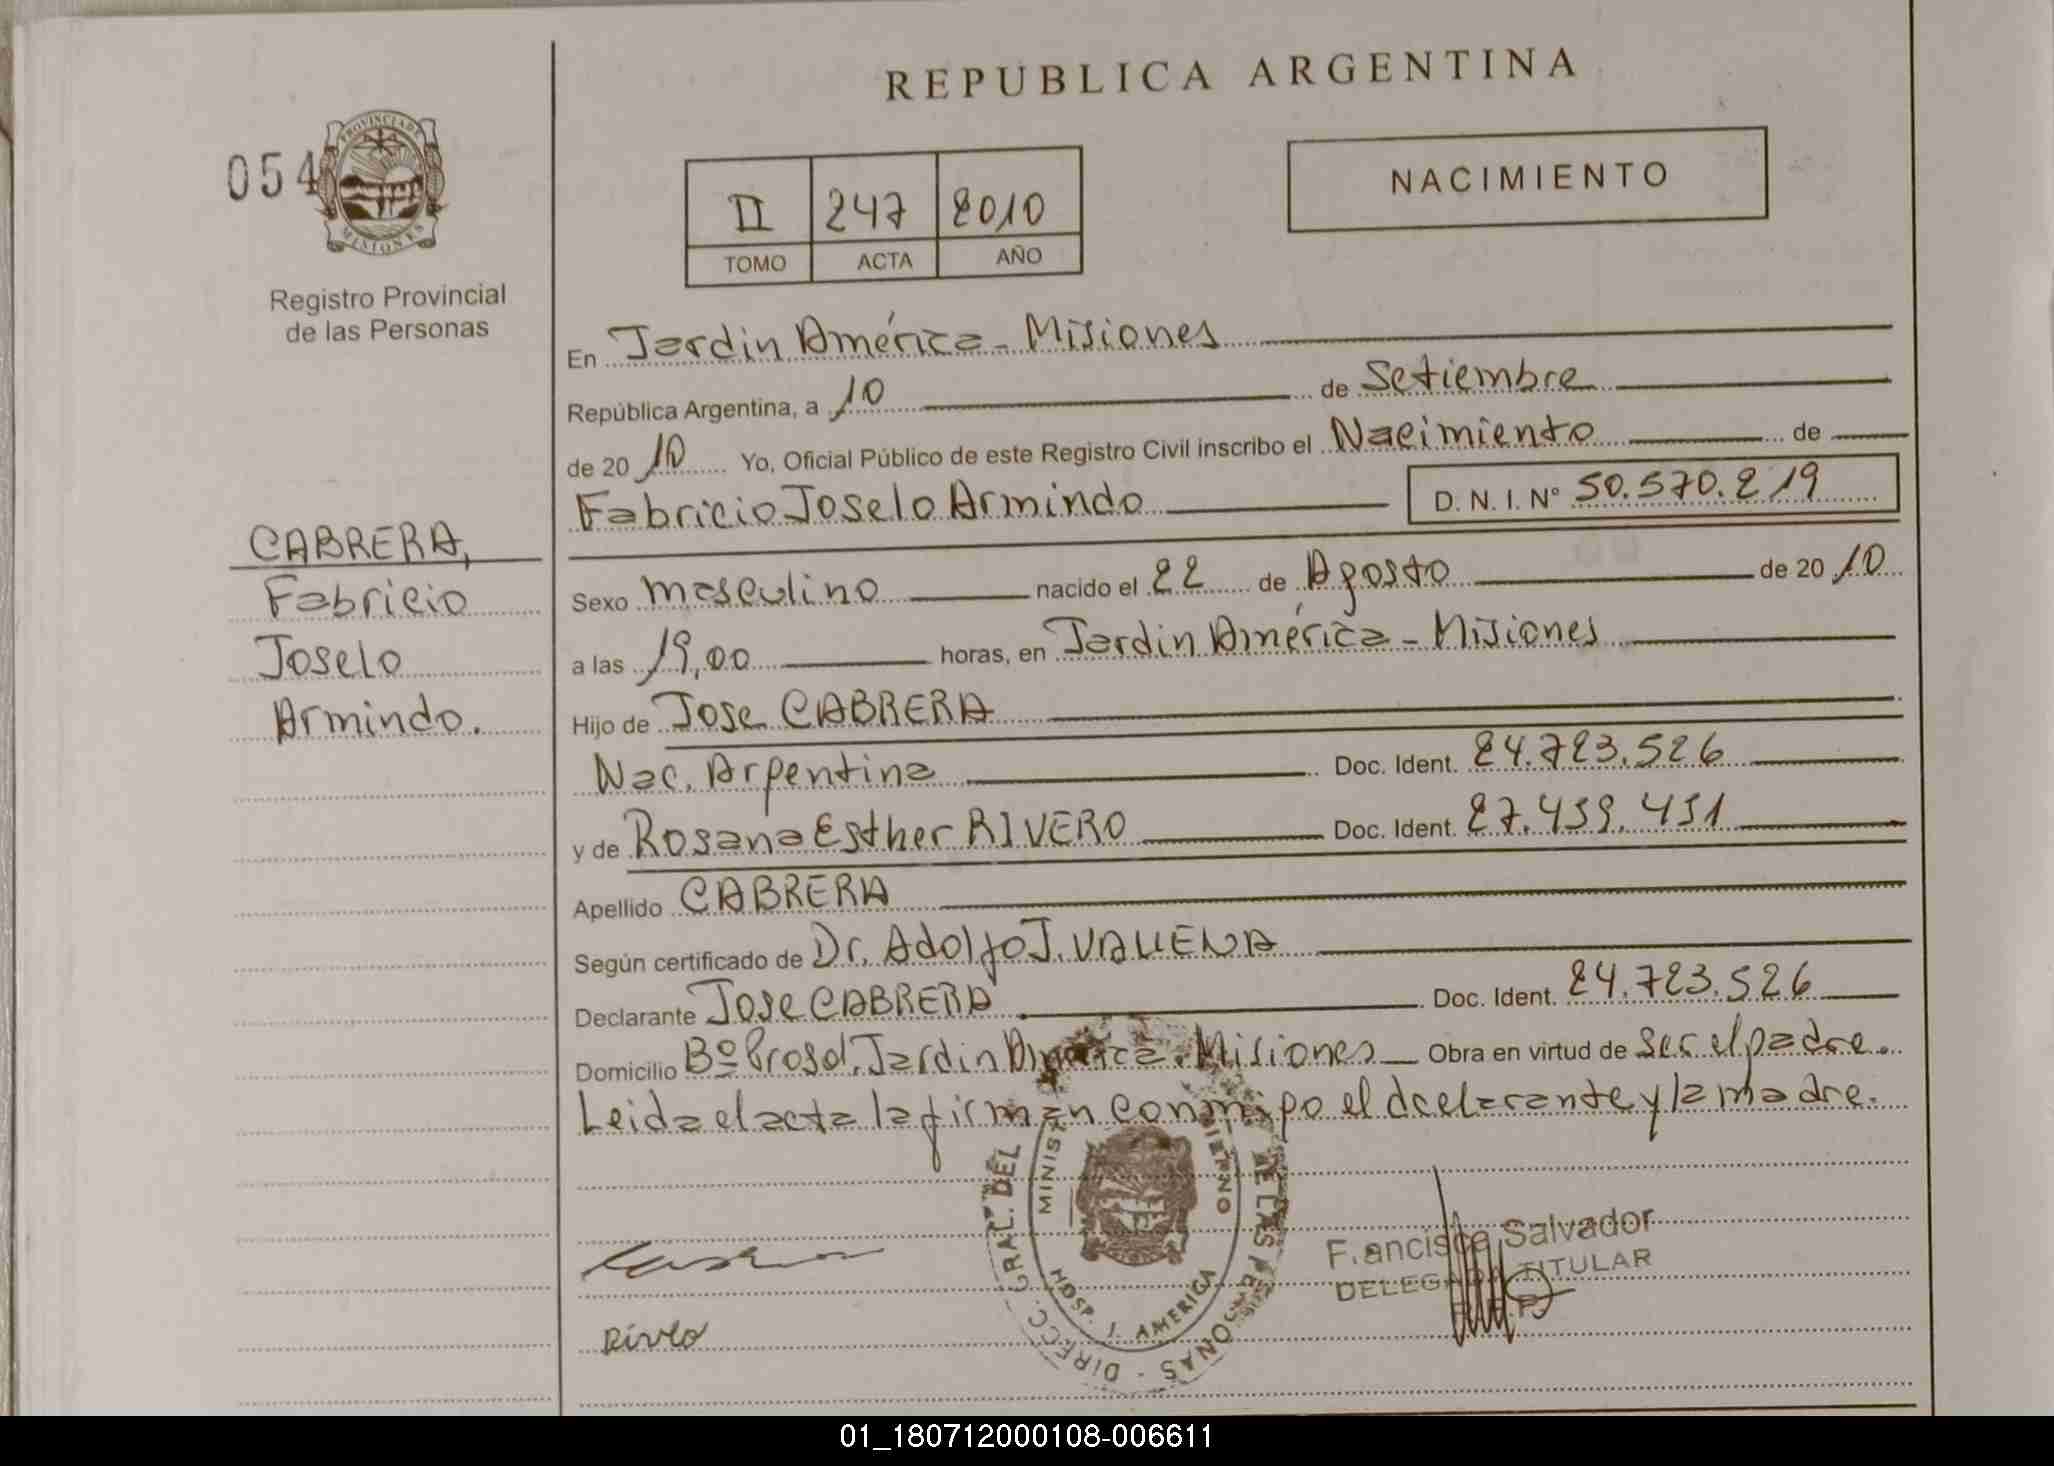 REPUBLICA ARGENTINA
054
PROVINCIA DE
MISIONES
Registro Provincial
de las Personas
NACIMIENTO
II 247 2010
TOMO ACTA AÑO
CABRERA,
Fabricio
Joselo
Armindo.
En Jardin América - Misiones
República Argentina, a 10 de Setiembre
de 2010 Yo, Oficial Público de este Registro Civil inscribo el Nacimiento de
Fabricio Joselo Armindo D. N. I. N° 50.570.219
Sexo masculino nacido el 22 de Agosto de 2010
a las 19,00 horas, en Jardin América - Misiones
Hijo de Jose CABRERA
Nac. Argentina Doc. Ident. 24.723.526
y de Rosana Esther RIVERO Doc. Ident. 27.459.451
Apellido CABRERA
Según certificado de Dr. Adolfo J. VALLENA
Declarante Jose CABRERA Doc. Ident. 24.723.526
Domicilio Bº Prosol, Jardin América. Misiones Obra en virtud de ser el padre.
Leida el acta la firman conmigo el declarante y la madre.
DIRECC. GRAL. DEL DE LAS PERSONAS
HOSP. J. AMERICA
Francisco Salvador
DELEGADO TITULAR
R.P.P.
01_180712000108-006611